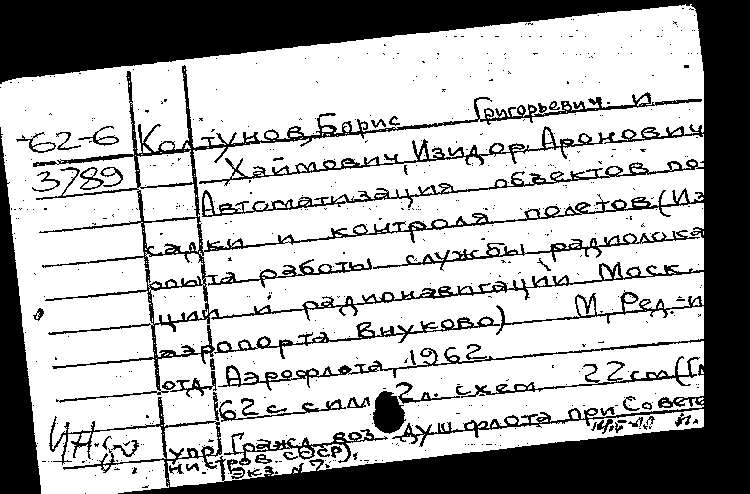 62-6 Колтунов, Борис Григорьевич и
3789 Хаймович, Изидор Аронович
Автоматизация объектов по-
садки и контроля полетов (Из
опыта работы службы радиолока
ции и радионавигации Моск.
аэропорта Внуково) М., Ред.-и
отд. Аэрофлота, 1962.
62 с. с илл. 2 л. схем 22 см (Гл
упр. Гражд. воз. душ флота при Совете
министров СССР).
Экз. №7.